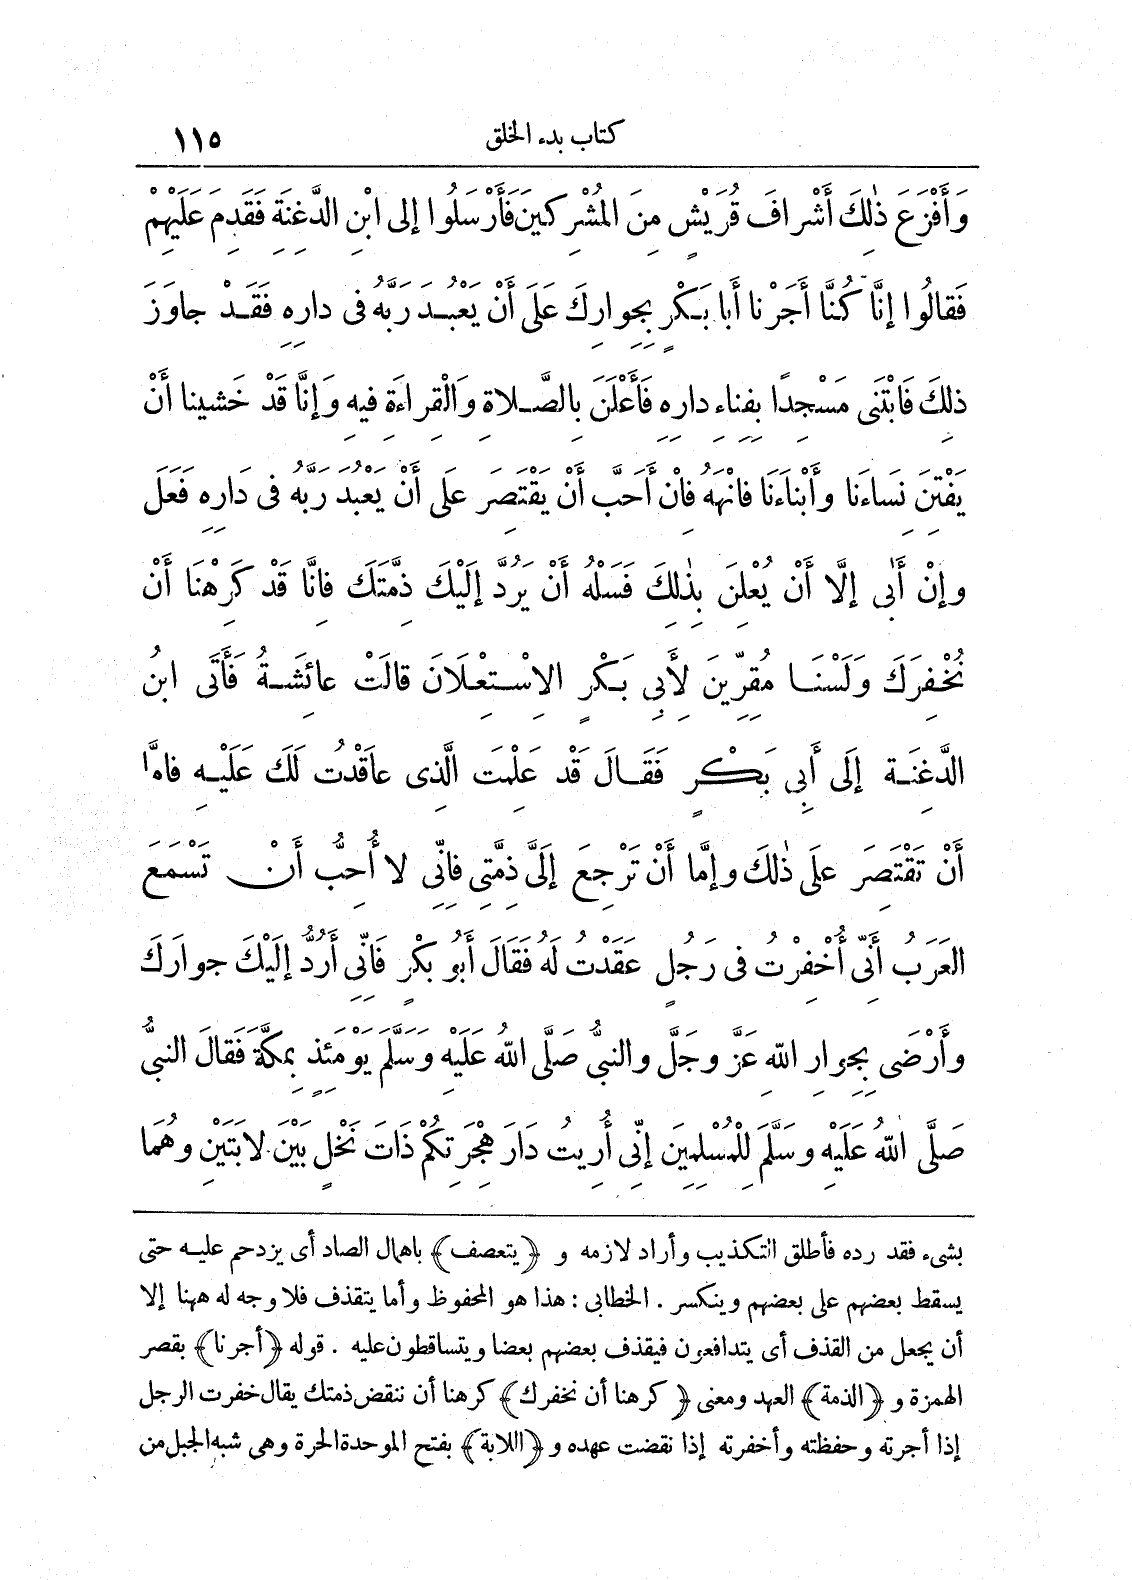 كتاب بدء الخلق ١١٥
وَأَفْزَعَ ذٰلِكَ أَشْرافَ قُرَيْشٍ مِنَ المُشْرِكِينَ فَأَرْسَلُوا إلى ابْنِ الدَّغِنَةِ فَقَدِمَ عَلَيْهِمْ
فَقالُوا إنَّا كُنَّا أَجَرْنا أَبا بَكْرٍ بِجِوارِكَ عَلَى أَنْ يَعْبُدَ رَبَّهُ فى دارِهِ فَقَدْ جاوَزَ
ذلِكَ فَابْتَنَى مَسْجِدًا بِفِناءِ دارِهِ فَأَعْلَنَ بِالصَّلاةِ وَالْقِراءَةِ فِيهِ وَإنَّا قَدْ خَشِينا أَنْ
يَفْتِنَ نِساءَنا وأَبْناءَنَا فانْهَهُ فانْ أَحَبَّ أَنْ يَقْتَصِرَ علَى أَنْ يَعْبُدَ رَبَّهُ فى دَارِهِ فَعَلَ
وإنْ أَبٰى إلَّا أَنْ يُعْلِنَ بِذٰلِكَ فَسَلْهُ أَنْ يَرُدَّ إلَيْكَ ذِمَّتَكَ فانَّا قَدْ كَرِهْنَا أَنْ
نُخْفِرَكَ وَلَسْنَا مُقِرِّينَ لِأَبِى بَكْرٍ الِاسْتِعْلَانَ قالَتْ عائِشَةُ فَأَتَى ابنُ
الدَّغِنَةِ إلَى أَبِى بَكْرٍ فَقَالَ قَد عَلِمْتَ الَّذِى عاقَدْتُ لَكَ عَلَيْهِ فامَّا
أَنْ تَقْتَصِرَ علَى ذٰلكَ وإمَّا أَنْ تَرْجِعَ إلَىَّ ذِمَّتِى فإنِّى لا أُحِبُّ أَنْ تَسْمَعَ
العَرَبُ أَنِّى أُخْفِرْتُ فى رَجُلٍ عَقَدْتُ لَهُ فَقَالَ أَبُو بكْرٍ فَانِّى أَرُدُّ إلَيْكَ جِوارَكَ
وأَرْضَى بِجِوارِ اللهِ عَزَّ وجَلَّ والنبىُّ صَلَّى اللهُ عَلَيْهِ وَسَلَّمَ يَوْمَئِذٍ بِمَكَّةَ فَقَالَ النبىُّ
صَلَّى اللهُ عَلَيْهِ وسَلَّمَ لِلْمُسْلِمِينَ إنِّى أُرِيتُ دَارَ هِجْرَتِكُمْ ذَاتَ نَخْلٍ بَيْنَ لابَتَيْنِ وهُمَا
بشىء فقد رده فأطلق التكذيب وأراد لازمه و ﴿يتعصف﴾ باهمال الصاد أى يزدحم عليه حتى
يسقط بعضهم على بعضهم وينكسر . الخطابى : هذا هو المحفوظ وأما يتقذف فلا وجه له ههنا إلا
أن يجعل من القذف أى يتدافعون فيقذف بعضهم بعضا ويتساقطون عليه . قوله ﴿أجرنا﴾ بقصر
الهمزة و ﴿الذمة﴾ العهد ومعنى ﴿كرهنا أن نخفرك﴾ كرهنا أن ننقض ذمتك يقال خفرت الرجل
إذا أجرته وحفظته وأخفرته إذا نقضت عهده و ﴿اللابة﴾ بفتح الموحدة الحرة وهى شبه الجبل من